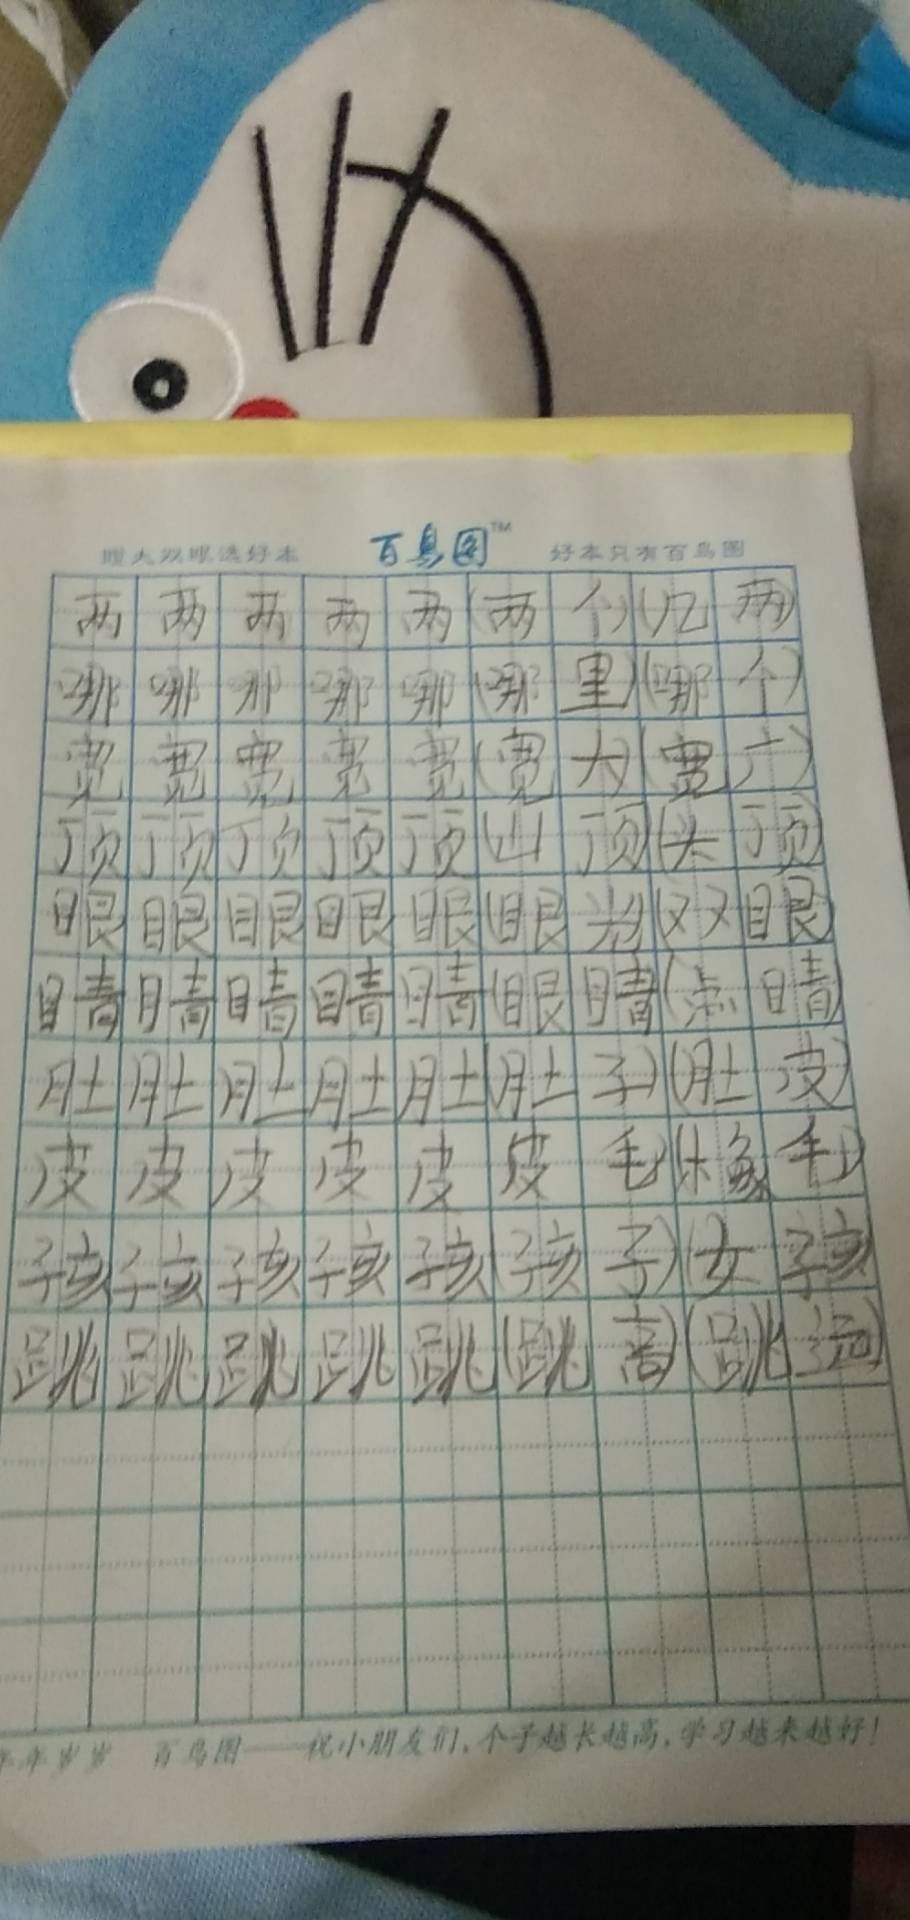 瞪大双眼选好本 百鸟图™ 好本只有百鸟图
两两两两两(两个)(几两)
哪哪哪哪哪(哪里)(哪个)
宽宽宽宽宽(宽大)(宽广)
顶顶顶顶顶山顶(头顶)
眼眼眼眼眼(眼光(双眼)
睛睛睛睛睛(眼睛(点睛)
肚肚肚肚肚(肚子)(肚皮)
皮皮皮皮皮皮毛(橡毛)
孩孩孩孩孩(孩子)(女孩
跳跳跳跳跳(跳高)(跳远)
年年岁岁 百鸟图——祝小朋友们,个子越长越高,学习越来越好!